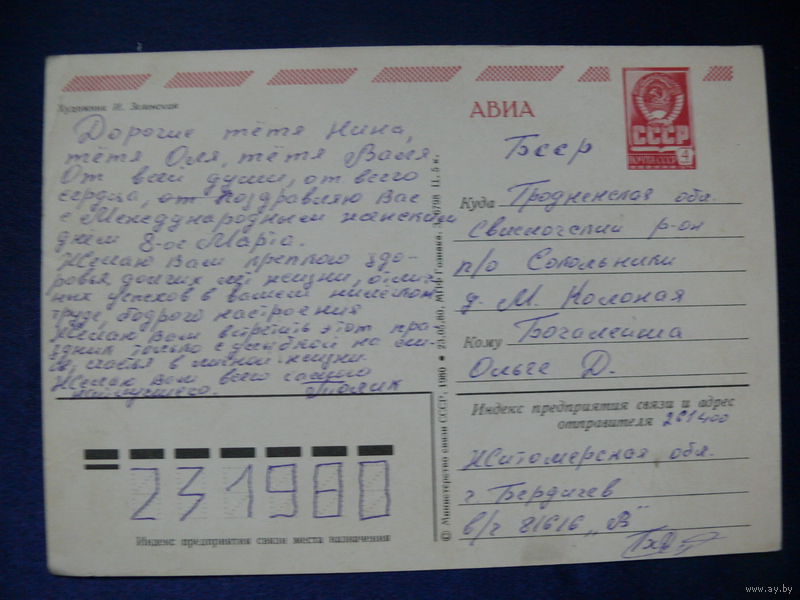 Художник И. Зелинская
Дорогие тётя Нина,
тётя Оля, тётя Валя.
От всей души, от всего
сердца, от поздравляю Вас
с Международным женским
днём 8-ое Марта.
Желаю Вам крепкого здо-
ровья, долгих лет жизни, отлич-
ных успехов в вашем нелёгком
труде, бодрого настроения
Желаю Вам встретить этот пра-
здник только с улыбкой на
счастья в личной жизни.
Желаю Вам всего самого
наилучшего. Толик
231980
Индекс предприятия связи места назначения
© Министерство связи СССР, 1980 • 23.05.80. МПФ Гознака. Ц. 5 к.
АВИА
СССР
ПОЧТА СССР 4
БССР
Куда Гродненская обл.
Свислочский р-он
п/о Сокольники
д. М. Колоная
Кому Богалейша
Ольге Д.
Индекс предприятия связи и адрес
отправителя 261400
Житомерская обл.
г Бердичев
в/ч 81616 „В"
www.ay.by